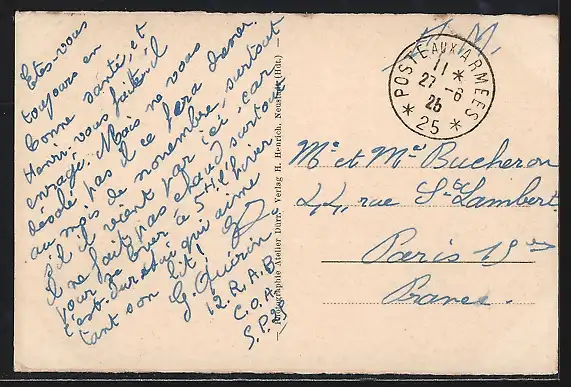 Etes-vous
toujours en
bonne santé, et
Henri, vous faites-il
enragé. Mais ne vous
désolé pas il ce fera damer
au mois de novembre, surtout
s'il vient par ici, car
il ne fait pas chaud surtout
pour se lever à 5H l'hiver
c'est dur celui qui aime
tant son lit!
G Guérin
12. R. A. B
C. O. A.
S. P.
Photographie Atelier Dürr, Verlag H. Henrich, Neustadt (Hdt.)
F. M.
* POSTE AUX ARMEES *
11 *
27 - 6
26
25
Mr et Me Bucheron
44, rue St Lambert
Paris 15
France